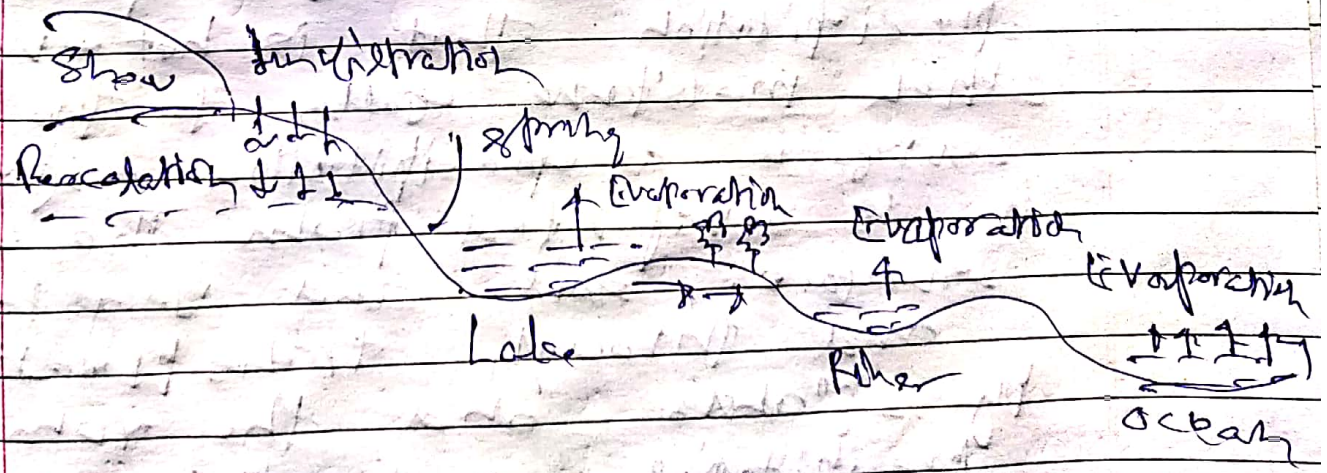 Snow Infiltration
Spring
Percolation
Evaporation
Evaporation
Evaporation
Lake
River
Ocean